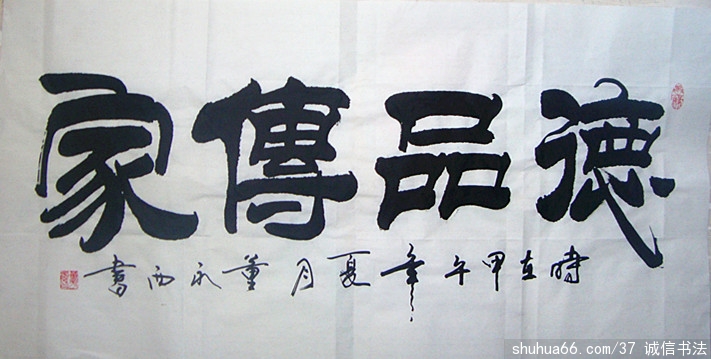 德品傳家
時在甲午年夏月董永西書
shuhua66.com/37 诚信书法